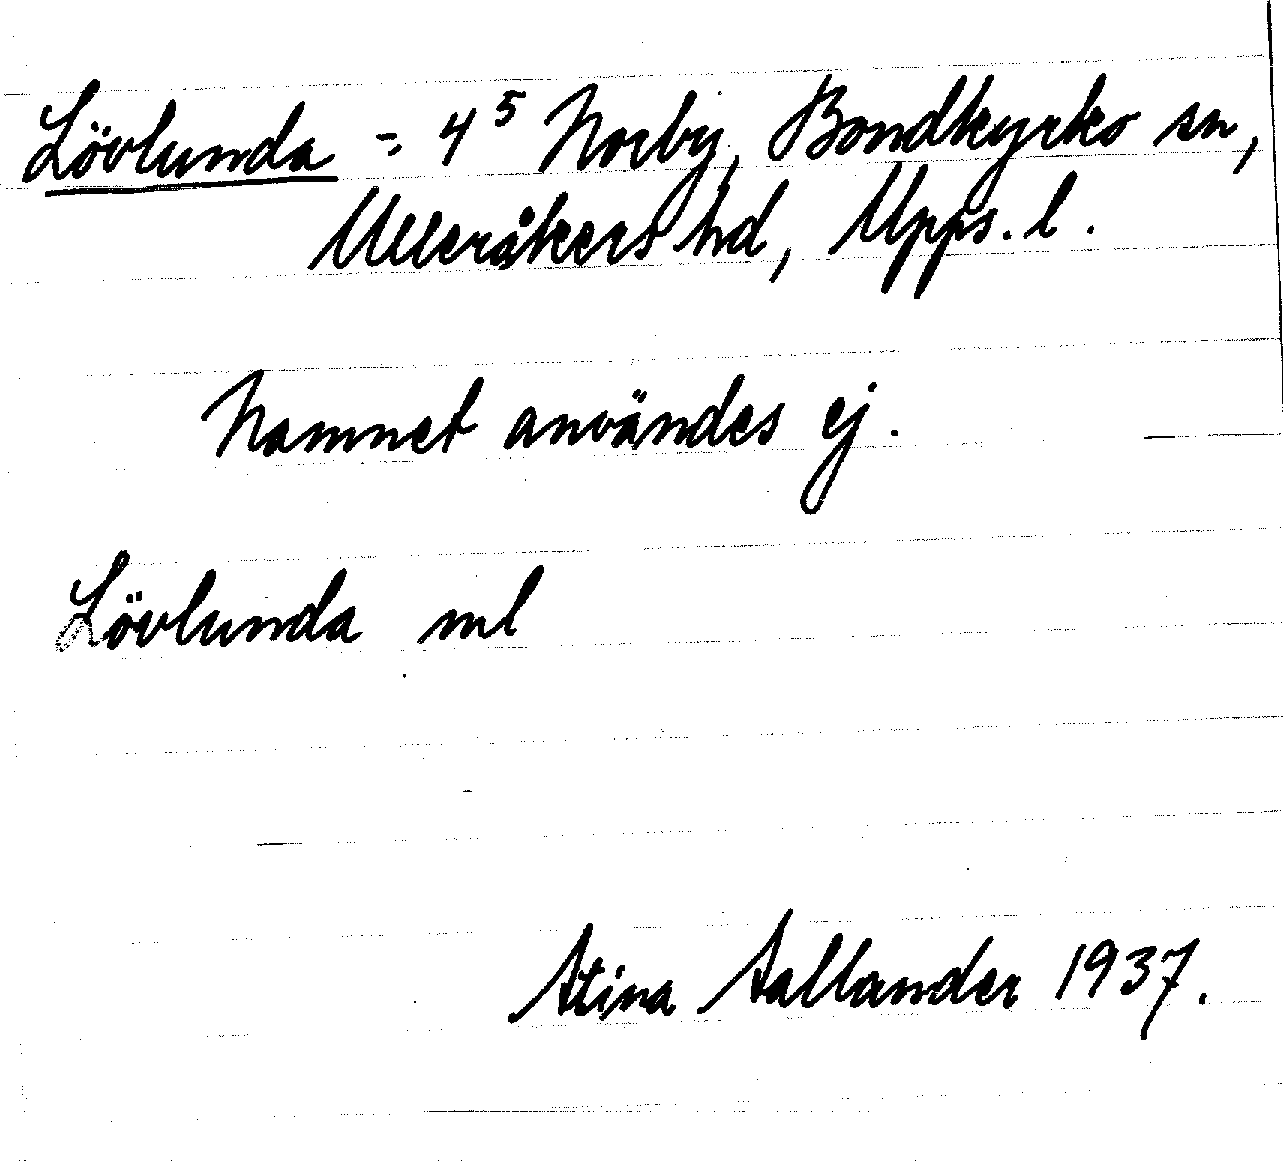 Lövlunda = 4⁵ Norby, Bondkyrko sn,
Ulleråkers hd, Upps. l.
Namnet användes ej.
Lövlunda ml
Stina Sallander 1937.